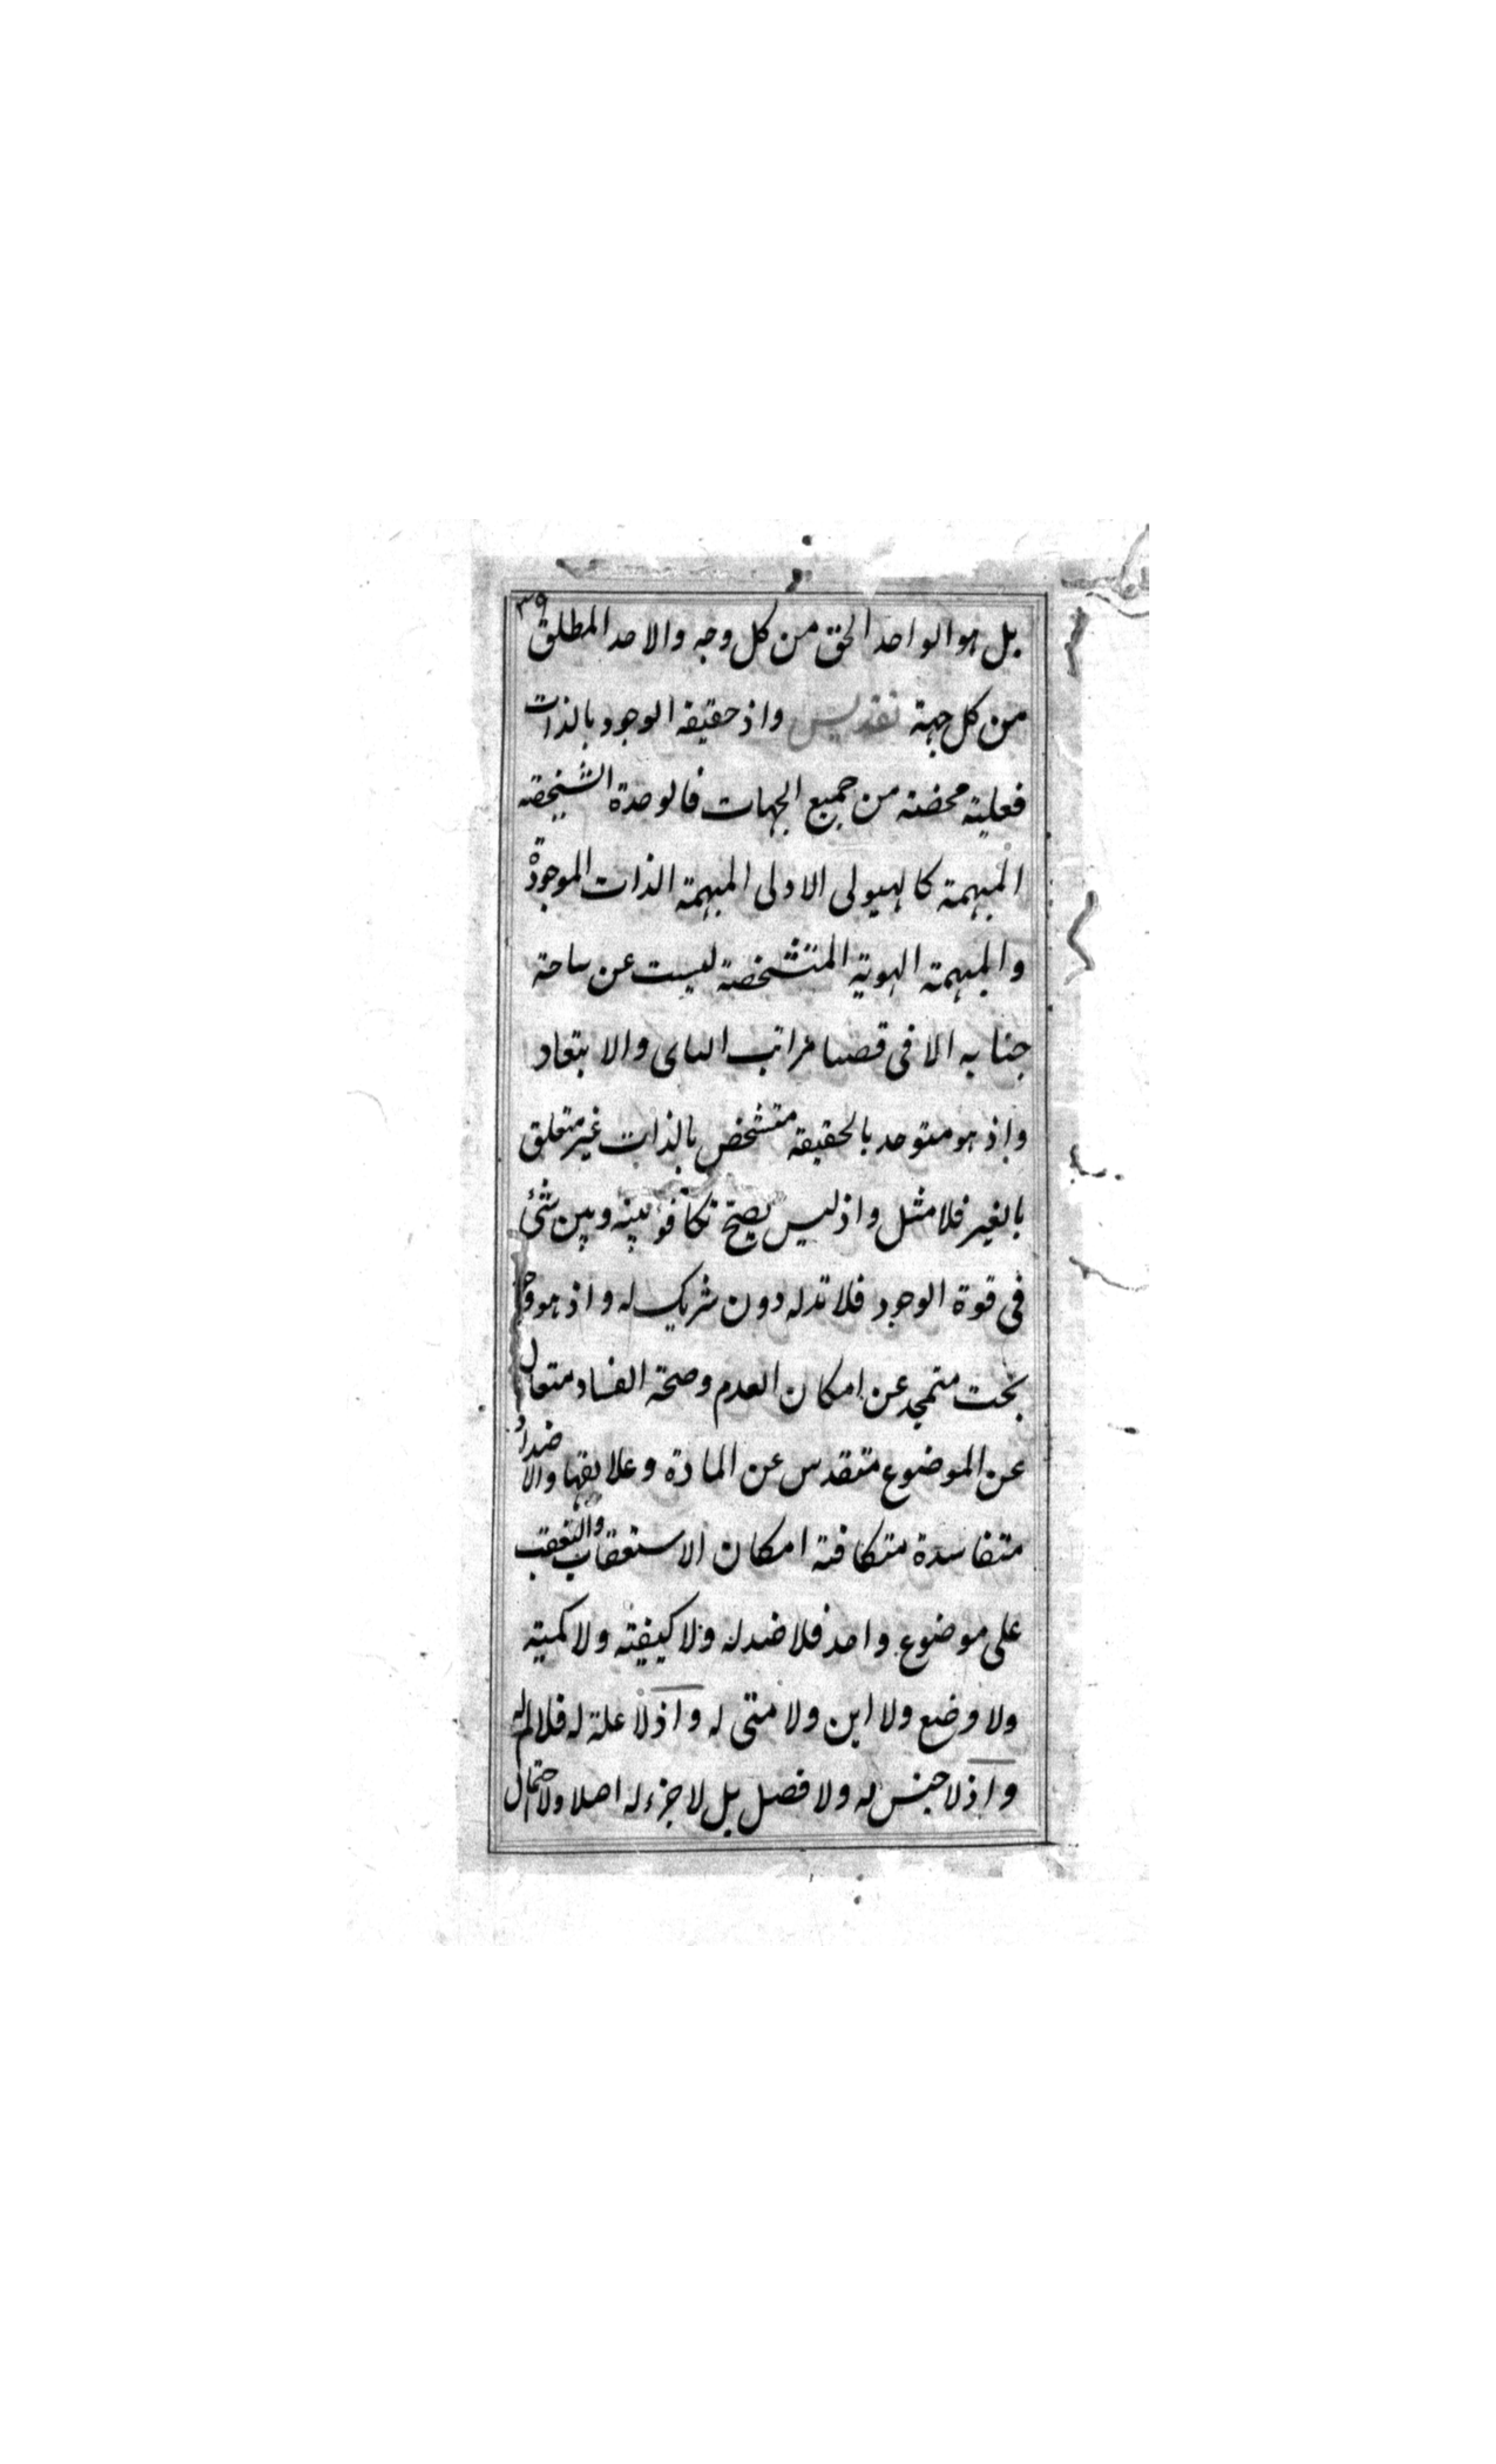 ٣٩
بل هو الواحد الحق من كل وجه والاحد المطلق
من كل جهة تقديس واذ حقيقة الوجود بالذات
فعلية محضة من جميع الجهات فالوحدة الشخصية
المبهمة كالهيولى الاولى المبهمة الذات الموجودة
والمبهمة الهوية المتشخصة ليست عن ساحة
جنابه الا فى قصيا مراتب الناى والابتعاد
واذ هو متوحد بالحقيقة متشخص بالذات غير متعلق
بالغير فلا مثل واذ ليس يصح تكافؤ بينه وبين شئ
فى قوة الوجود فلا ند له دون شريك له واذ هو
بحت متمجد عن امكان العدم وصحة الفساد متعال
عن الموضوع متقدس عن المادة وعلايقها والاضداد
متفاسدة متكافئة امكان الاستعقاب والتعقب
على موضوع واحد فلا ضد له ولا كيفية ولا كمية
ولا وضع ولا اين ولا متى له واذ لا علة له فلا لم له
واذ لا جنس له ولا فصل بل لا جزء له اصلا ولا احتمال